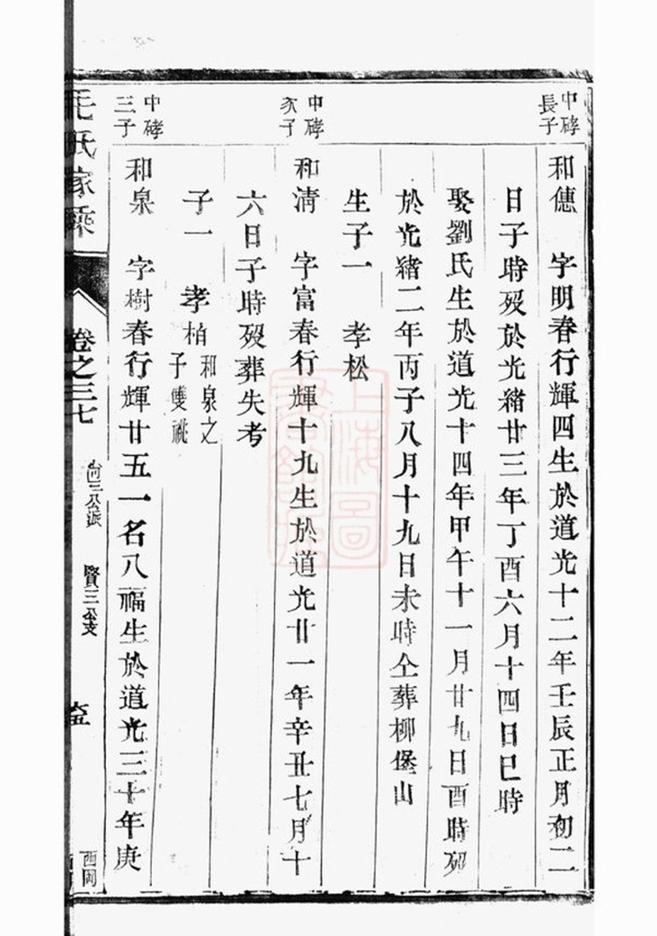 中硣長子
和僡 字明春行輝四生於道光十二年壬辰正月初二
日子時歿於光緒廿三年丁酉六月十四日巳時
娶劉氏生於道光十四年甲午十一月廿九日酉時歿
於光緒二年丙子八月十九日未時仝葬柳堡山
生子一 孝松
中硣次子
和清 字富春行輝十九生於道光廿一年辛丑七月十
六日子時歿葬失考
子一 孝柏 和泉之子雙祧
中硣三子
和泉 字樹春行輝廿五一名八福生於道光三十年庚
毛氏家乘
卷之三七
尚三公派 賢三公支
西岡
上海圖